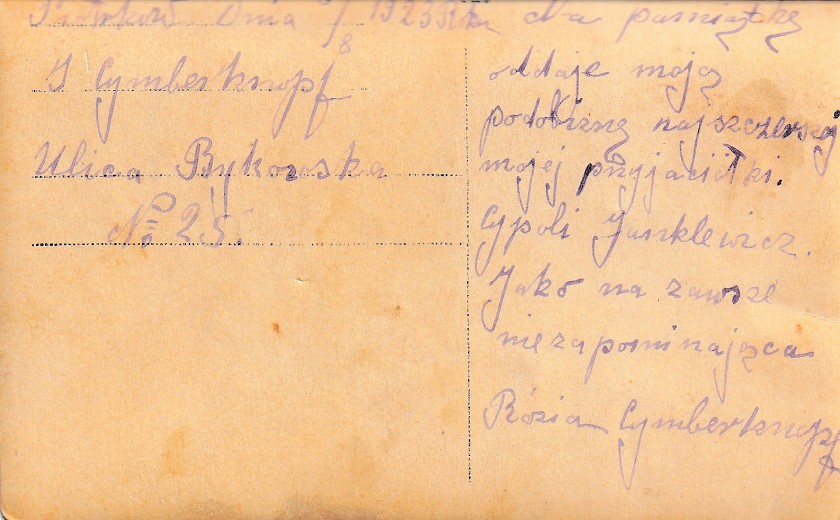 Piotrków Dnia 5/8 1923 Rku
J Cymberknopf
Ulica Bykowska
№ 25.
Na pamiątkę
oddaje moją
podobiznę najszczerszej
mojej przyjaciółki.
Cypoli Janklewicz.
Jako na zawsze
niezapominająca
Rózia Cymberknopf